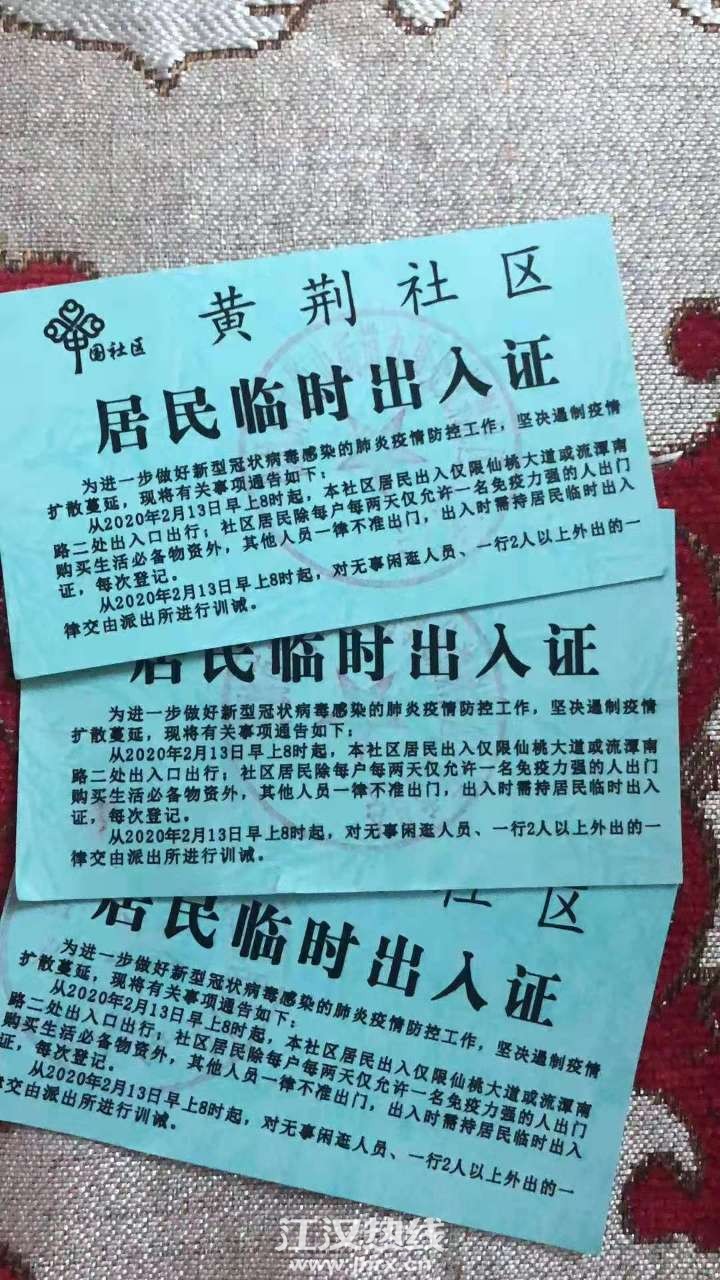 中国社区
黄荆社区
居民临时出入证
为进一步做好新型冠状病毒感染的肺炎疫情防控工作，坚决遏制疫情
扩散蔓延，现将有关事项通告如下：
从2020年2月13日早上8时起，本社区居民出入仅限仙桃大道或流潭南
路二处出入口出行；社区居民除每户每两天仅允许一名免疫力强的人出门
购买生活必备物资外，其他人员一律不准出门，出入时需持居民临时出入
证，每次登记。
从2020年2月13日早上8时起，对无事闲逛人员、一行2人以上外出的一
律交由派出所进行训诫。
居民临时出入证
为进一步做好新型冠状病毒感染的肺炎疫情防控工作，坚决遏制疫情
扩散蔓延，现将有关事项通告如下：
从2020年2月13日早上8时起，本社区居民出入仅限仙桃大道或流潭南
路二处出入口出行；社区居民除每户每两天仅允许一名免疫力强的人出门
购买生活必备物资外，其他人员一律不准出门，出入时需持居民临时出入
证，每次登记。
从2020年2月13日早上8时起，对无事闲逛人员、一行2人以上外出的一
律交由派出所进行训诫。
社区
居民临时出入证
为进一步做好新型冠状病毒感染的肺炎疫情防控工作，坚决遏制疫情
扩散蔓延，现将有关事项通告如下：
从2020年2月13日早上8时起，本社区居民出入仅限仙桃大道或流潭南
路二处出入口出行；社区居民除每户每两天仅允许一名免疫力强的人出门
购买生活必备物资外，其他人员一律不准出门，出入时需持居民临时出入
证，每次登记。
从2020年2月13日早上8时起，对无事闲逛人员、一行2人以上外出的一
律交由派出所进行训诫。
江汉热线
www.jhrx.cn